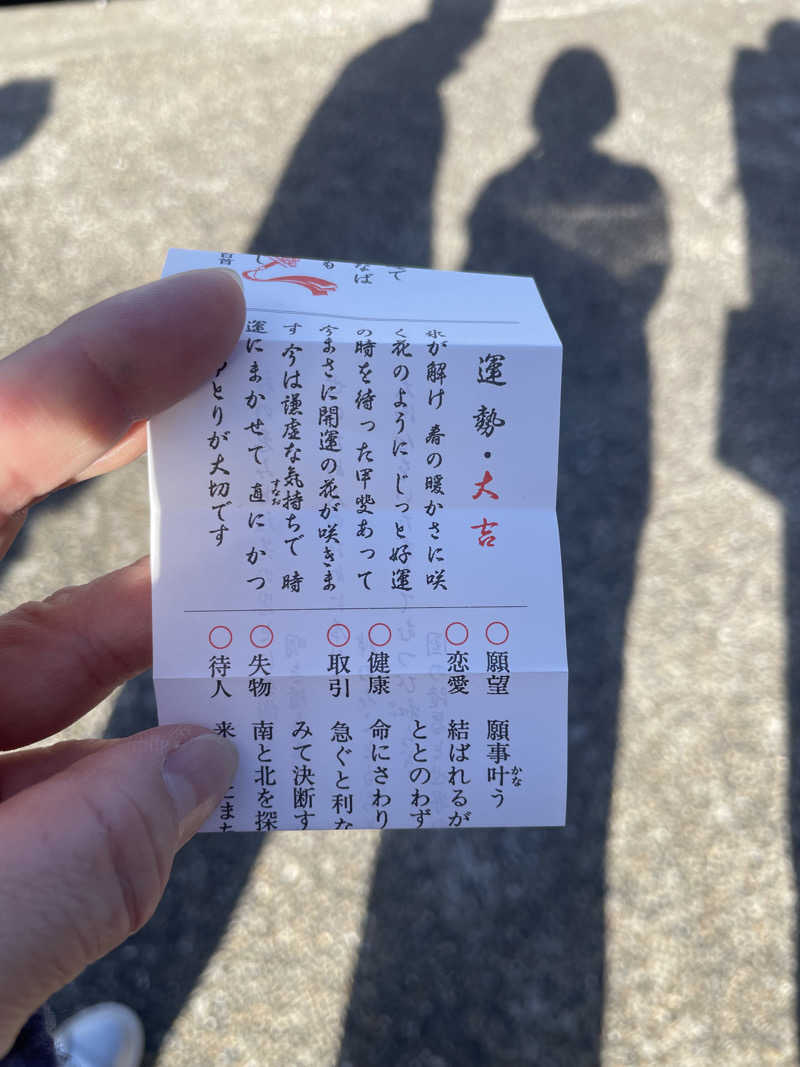 て
なば
も
し
百首
運勢・大吉
氷が解け 春の暖かさに咲
く花のように じっと好運
の時を待った甲斐あって
今まさに開運の花が咲きま
す 今は謙虚な気持ちで 時
運にまかせて 直に かつ
すなお
とりが大切です
○願望 願事叶う
かな
○恋愛 結ばれるが
ととのわず
○健康 命にさわり
○取引 急ぐと利な
みて決断す
○失物 南と北を探
○待人 来
にまち